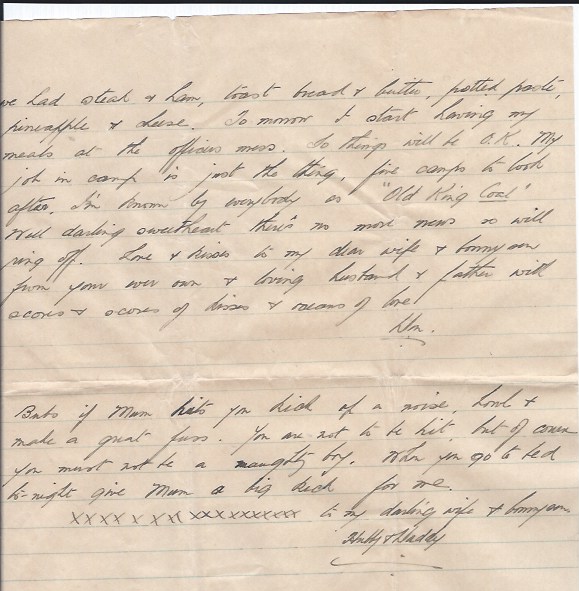 we had steak & ham, toast bread & butter, potted paste,
pineapple & cheese. To morrow I start having my
meals at the officers mess. So things will be O.K. My
job in camp is just the thing, five camps to look
after. I'm known by everybody as "Old King Coal"
Well darling sweetheart there's no more news so will
ring off. Love & kisses to my dear wife & bonny son
from your ever own & loving husband & father with
scores & scores of kisses & oceans of love
Bubs if Mum hits you kick up a noise, howl &
make a great fuss. You are not to be hit, but of course
you must not be a naughty boy. When you go to bed
to-night give Mum a big kick for me.
xxxx x xx xxxxxxxxxx to my darling wife & bonny son
Hubby & Daddy